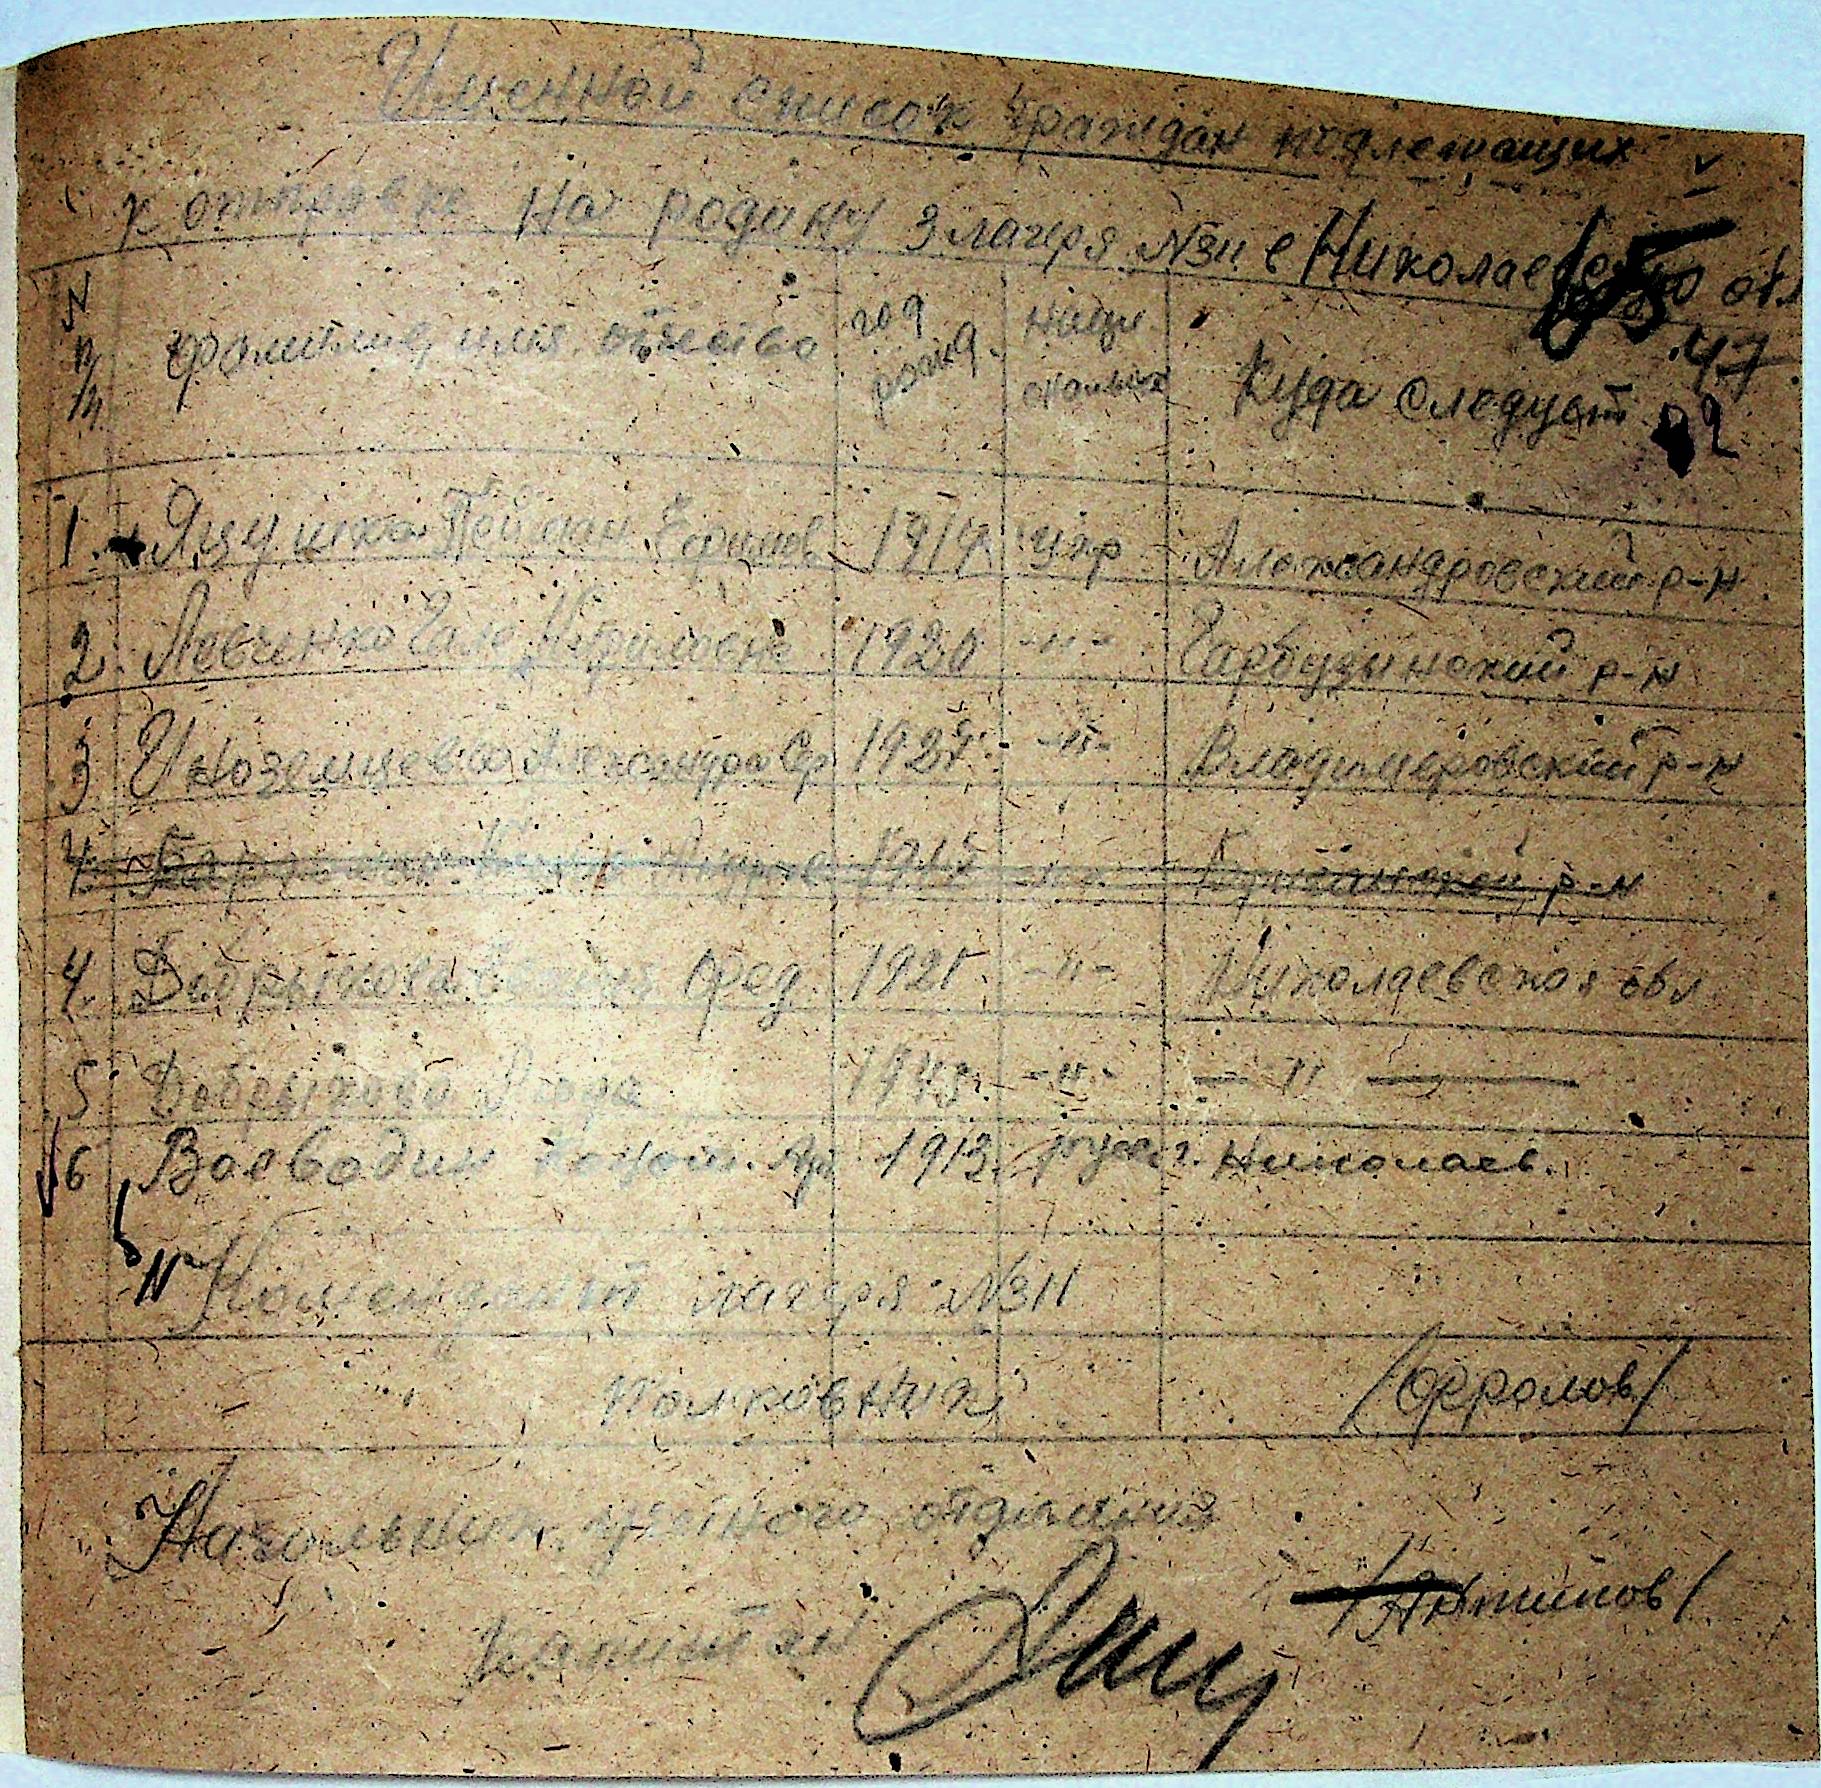 Именной список граждан подлежащих
к отправке на родину з лагеря №311 в Николаевскую обл
65
47
92
N п/п фамилия, имя, отчество год рожд. наци ональн Куда следует
1. Яцушко Ефимов 1914 укр Александровский р-н
2. Левченко Галя 1920 -"- Гарбузынский р-н
3 Иноземцева Александра 1924 -"- Владимировский р-н
4 р-н
4. Добрынова Фед 1921 -"- Николаевская обл
5. Добрынова 1945 -"- — " —
6 Воеводин 1913 русс г. Николаев.
Комендант лагеря №311
полковник /Офролов/
Начальник учётного отделения
капитан /Антипов/